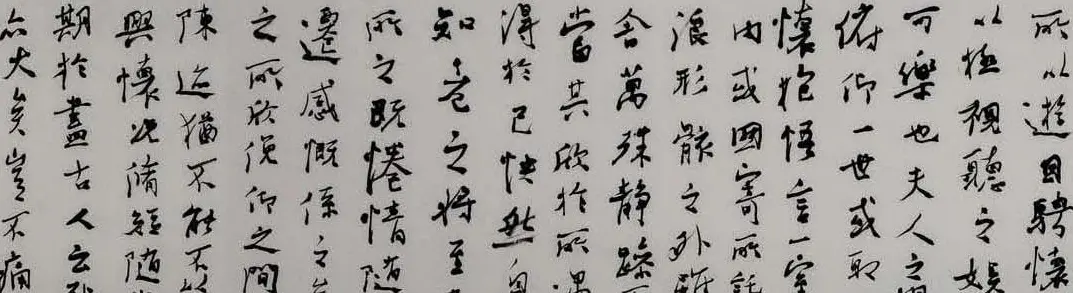 所以遊目騁懷
以極視聽之娛
可樂也夫人之
俯仰一世或取
懷抱悟言一室
内或因寄所託
浪形骸之外雖
舍萬殊靜躁
當其欣於所遇
得於己快然自
知老之將至
所之既惓情隨
遷感慨係之
之所欣俛仰之間
陳迹猶不能不
興懷況脩短隨
期於盡古人云
亦大矣豈不痛